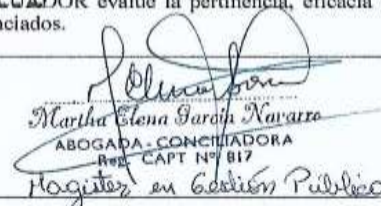 ECUADOR evalúe la pertinencia, eficacia
nciados.
Martha Elena García Navarro
ABOGADA - CONCILIADORA
Reg. CAPT Nº 817
Magister en Gestión Pública